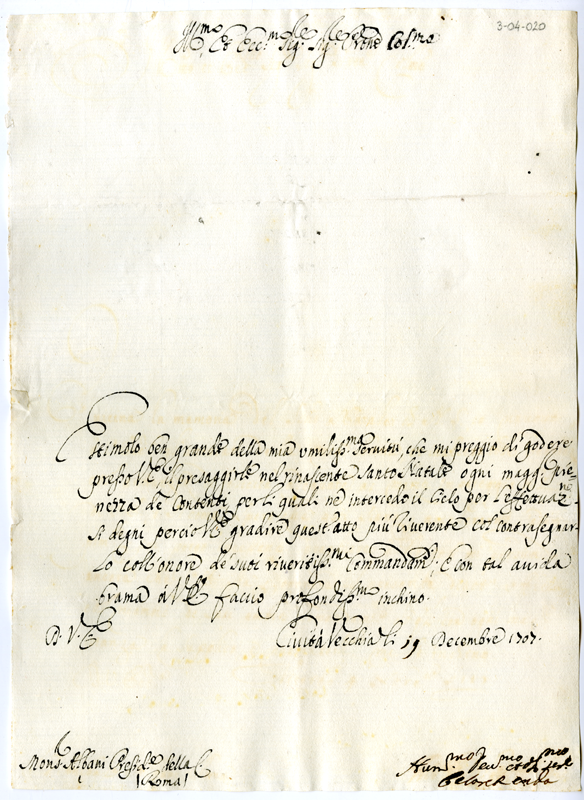 3-04-020
Ill.mo, et Ecc.mo Sig.r Sig.r Prone Col.mo
È stimolo ben grande della mia umiliss.ma servitù, che mi preggio di godere
presso V.E. il presaggirle nel rinascente Santo Natale ogni magg.r Pie=
nezza de Contenti per li quali ne intercedo il Cielo per l'effettuaz.ne
Si degni perciò V.E. gradire quest'atto più riverente col contrasegnar=
lo coll'onore de suoi riveritiss.mi Commandam.ti; E con tal avida
brama à V.E. faccio profondiss.mo inchino.
D. V. E.
Cività Vecchia li 19 Decembre 1707.
Mons.r Albani Presid.e della
(Roma)
Hum.mo Dev.mo et Obl.mo Ser.re